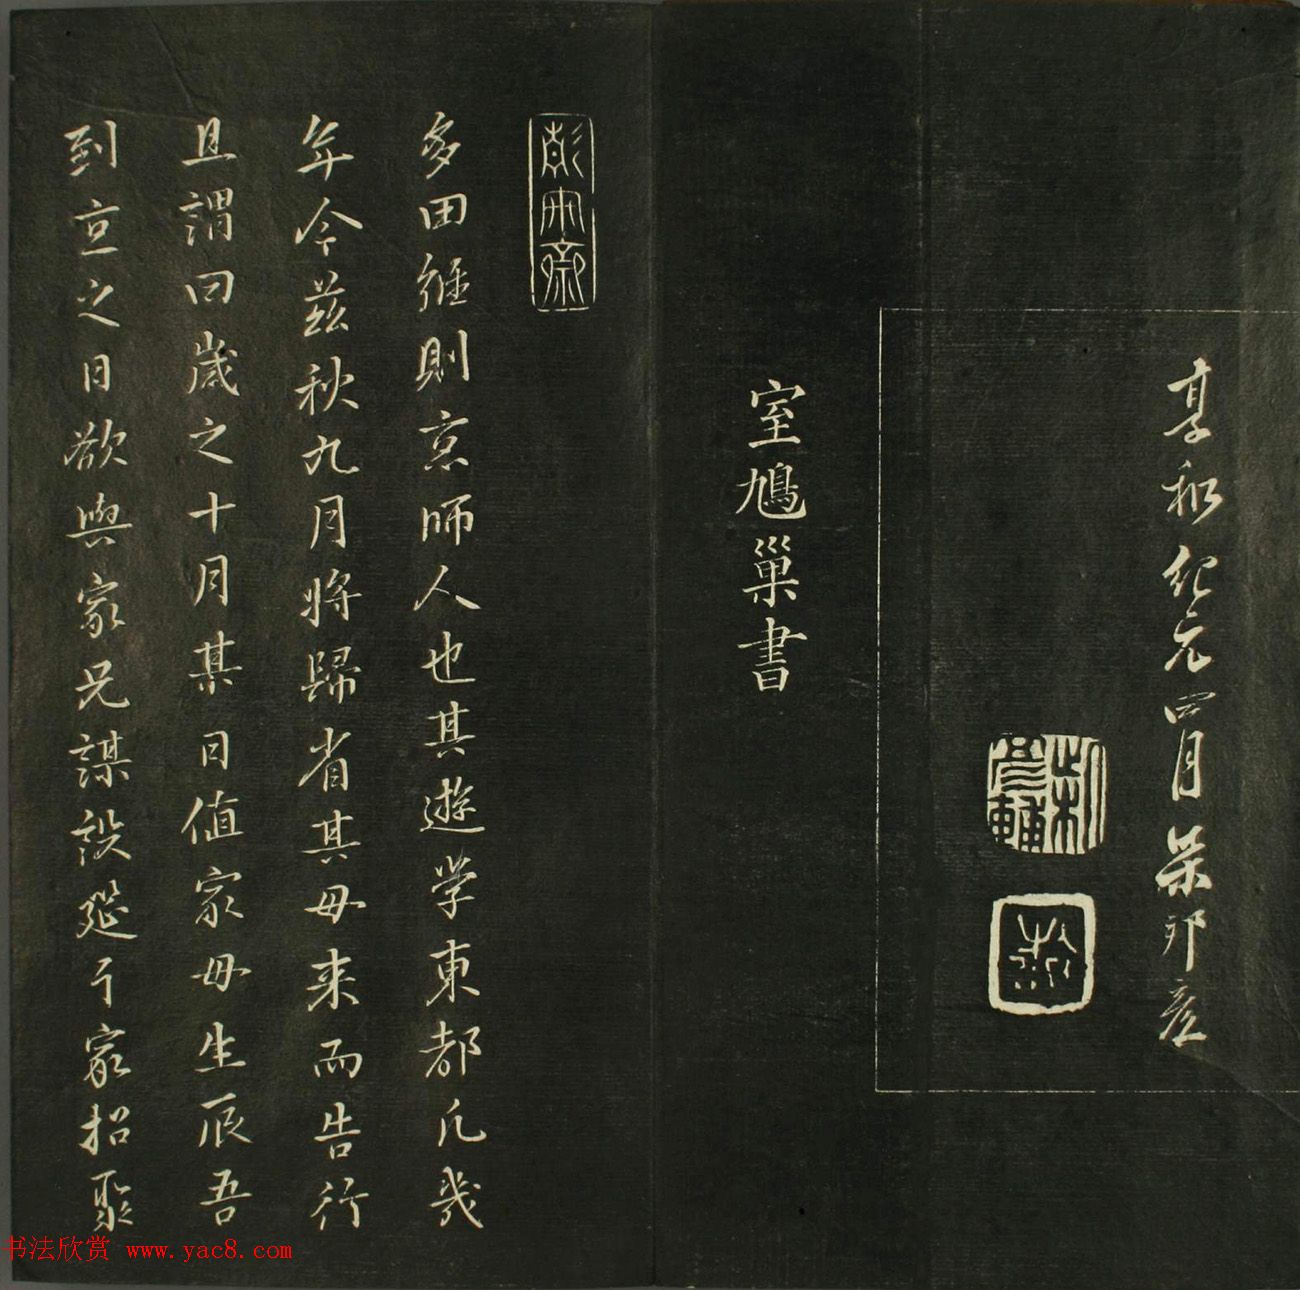 享和紀元四月柴邦彥
柴邦
彥輔
室鳩巢書
多田維則京師人也其遊学東都凡幾
年今茲秋九月將歸省其母来而告行
且謂曰歲之十月某日值家母生辰吾
到京之日欲與家兄謀設筵于家招聚
书法欣赏 www.yac8.com